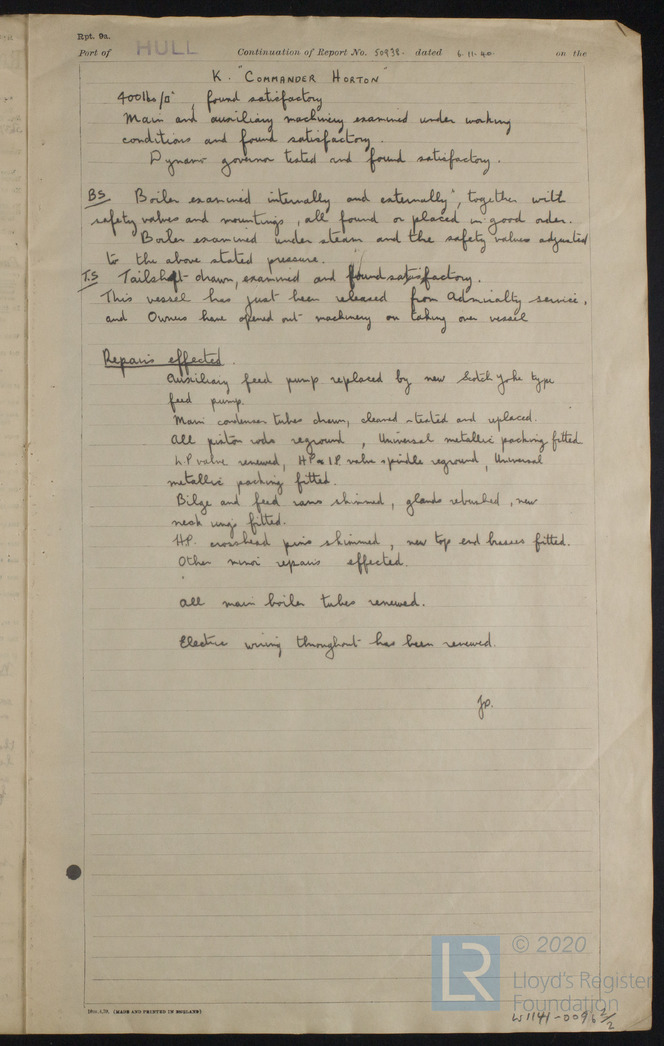 Rpt. 9a.
Port of HULL Continuation of Report No. 50938. dated 6.11.40. on the
K. "COMMANDER HORTON"
400lbs/□", found satisfactory
Main and auxiliary machinery examined under working
conditions and found satisfactory.
Dynamo governor tested and found satisfactory.
BS Boiler examined internally and externally, together with
safety valves and mountings, all found or placed in good order.
Boiler examined under steam and the safety valves adjusted
to the above stated pressure.
T.S Tailshaft drawn, examined and found satisfactory.
This vessel has just been released from Admiralty service,
and Owners have opened out machinery on taking over vessel
Repairs effected.
Auxiliary feed pump replaced by new Scotch yoke type
feed pump.
Main condenser tubes drawn, cleaned tested and replaced.
All piston rods reground, Universal metallic packing fitted
L.P valve renewed, HP & IP valve spindle reground, Universal
metallic packing fitted.
Bilge and feed rams skimmed, glands rebushed, new
neck rings fitted.
HP. crosshead pins skimmed, new top end brasses fitted.
Other minor repairs effected.
All main boiler tubes renewed.
Electric wiring throughout has been renewed.
(MADE AND PRINTED IN ENGLAND)
LR © 2020
Lloyd's Register
Foundation
W1141-0096 2/2